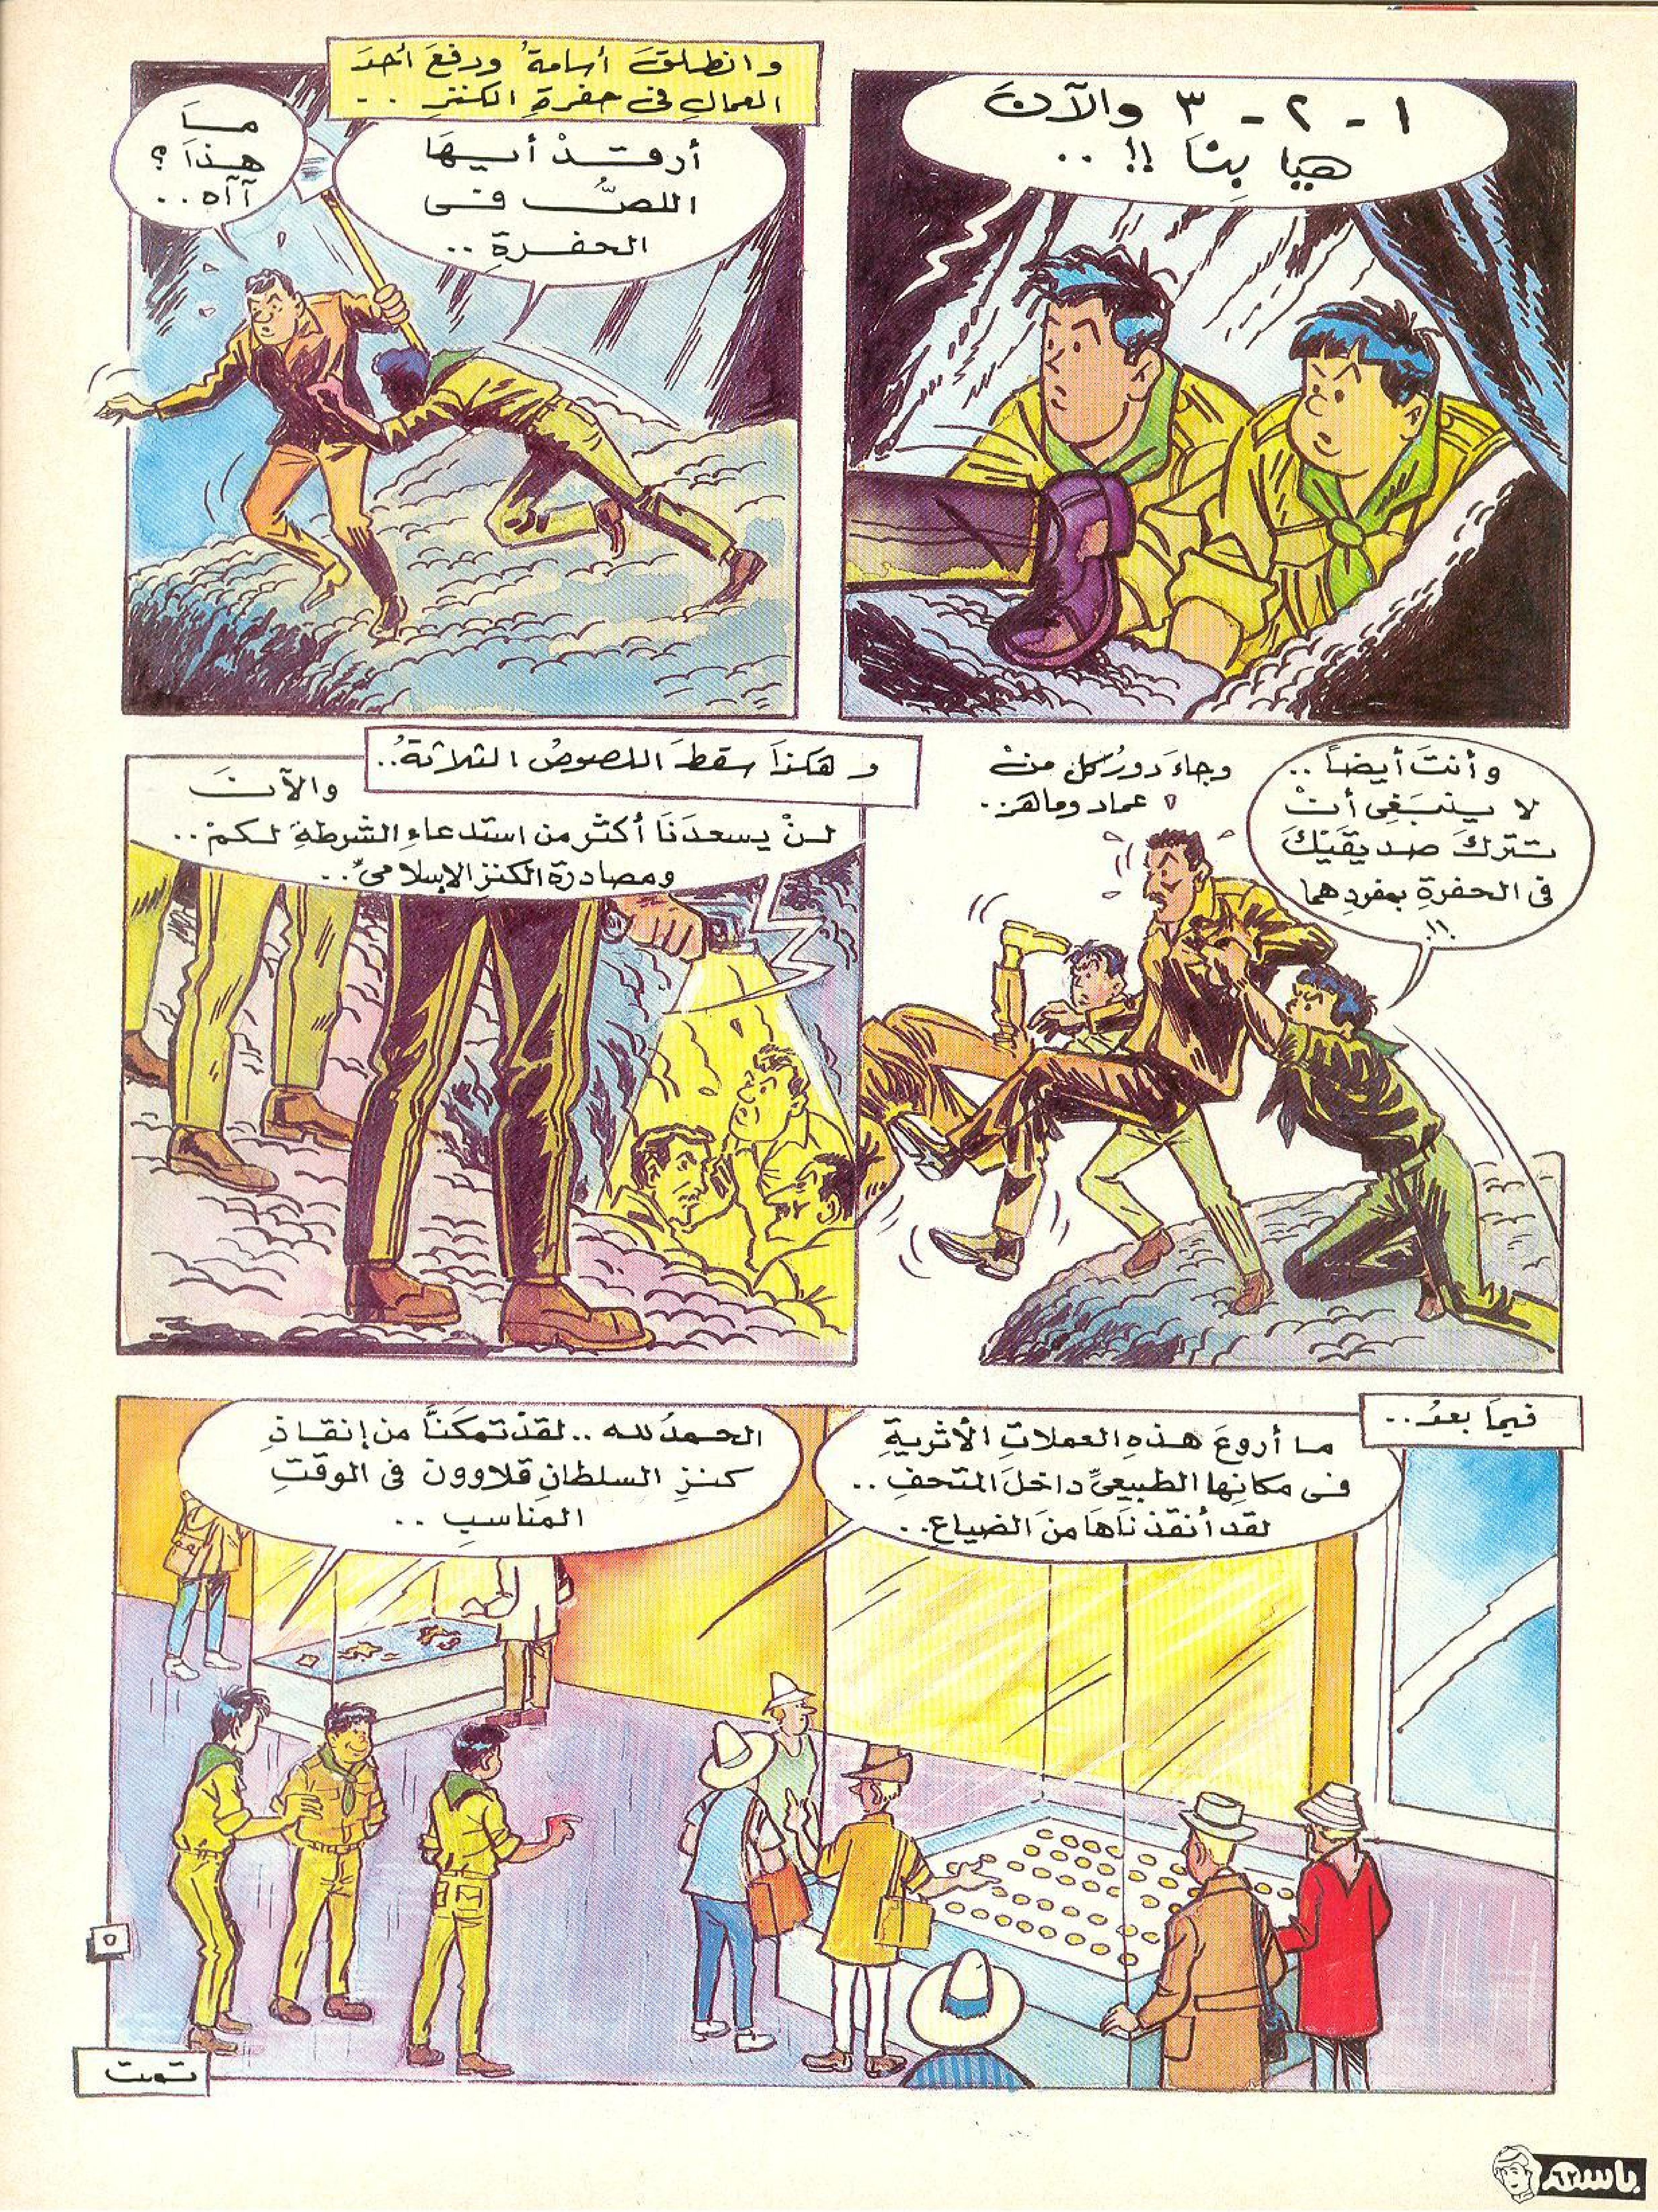 ١ - ٢ - ٣ والآن
هيا بِنَا !! ..
وانطلقَ أسامةُ ودفعَ أحدَ
العمالِ فى حفرةِ الكنزِ ..
أرقدْ أيهَا
اللصُّ فى
الحفرةِ ..
مَا
هذَا ؟
آآه ..
وجاءَ دورُ كل منْ
عماد وماهر ..
وأنتَ أيضاً ..
لا ينبَغِى أنْ
تتركَ صديقَيْكَ
فى الحفرةِ بمفردِهما
!!
و هكذَا سقطَ اللصوصُ الثلاثةُ ..
والآنَ
لنْ يسعدَنَا أكثر من استدعاءِ الشرطةِ لكمْ ..
ومصادرة الكنزِ الإسلامىِّ ..
فيمَا بعدُ ..
ما أروعَ هذهِ العملاتِ الأثريةِ
فى مكانِها الطبيعىِّ داخلَ المتحفِ ..
لقد أنقذنَاهَا منَ الضياعِ ..
الحمدُ للهِ .. لقدْ تمكنَّا من إنقاذِ
كنزِ السلطانِ قلاوون فى الوقتِ
المناسبِ ..
٥
تمت
باسم